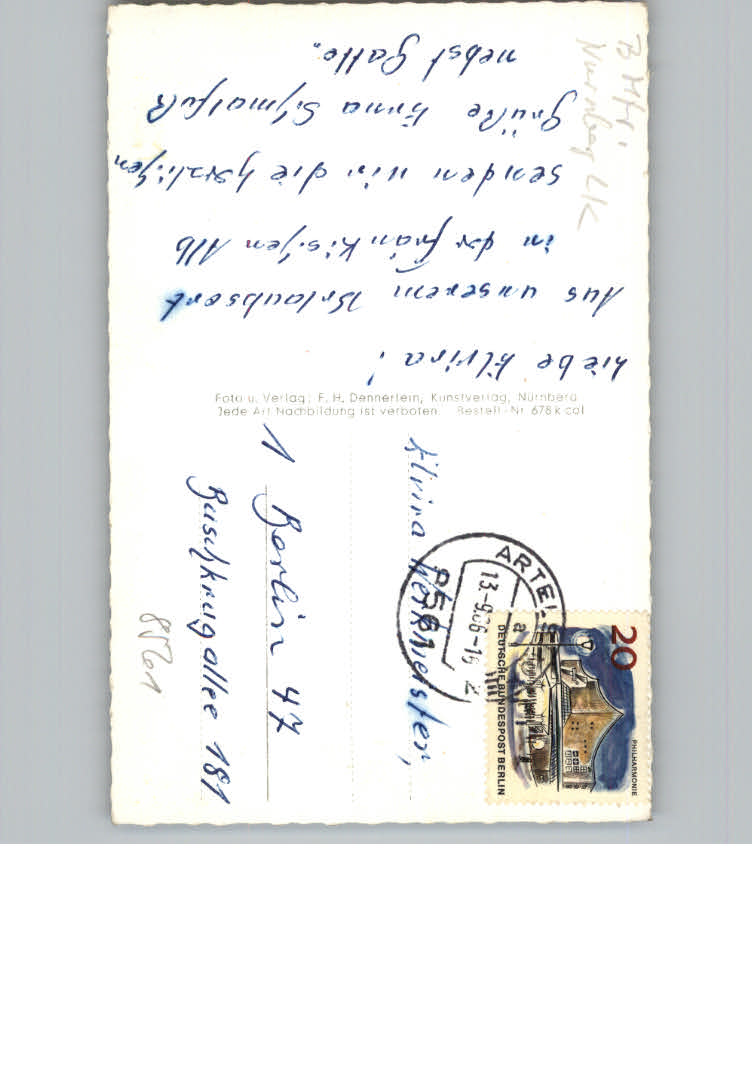 Liebe Elvira!
Aus unserem Urlaubsort
in der fränkischen Alb
senden wir die herzlichen
Grüße Erna
nebst Gatte.
Foto u. Verlag: F. H. Dennerlein, Kunstverlag, Nürnberg
Jede Art Nachbildung ist verboten Bestell-Nr. 678 k col
Elvira Werkmeister,
1 Berlin 47
Buschkrugallee 181
ARTELS
13.-9.66-16
a
8561
20
PHILHARMONIE
DEUTSCHE BUNDESPOST BERLIN
Nürnberg LK
8561